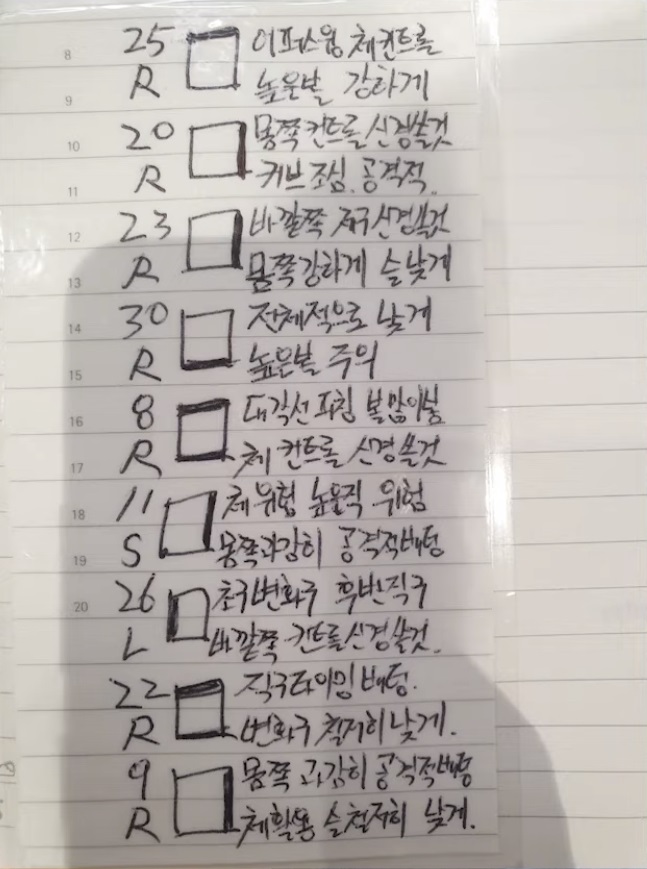 8 25 어퍼스윙 체컨트롤
9 R 높은볼 강하게
10 20 몸쪽컨트롤신경쓸것
11 R 커브조심. 공격적.
12 23 바깥쪽 제구신경쓸것
13 R 몸쪽강하게 슬낮게
14 30 전체적으로 낮게
15 R 높은볼 주의
16 8 대각선피칭 볼많이봄
17 R 체 컨트롤 신경쓸것
18 11 체위험 높은직 위험
19 S 몸쪽과감히 공격적배팅
20 26 초구변화구 후반직구
L 바깥쪽 컨트롤신경쓸것.
22 직구타이밍배팅.
R 변화구 철저히낮게.
9 몸쪽 과감히 공격적배팅
R 체활용 슬철저히 낮게.